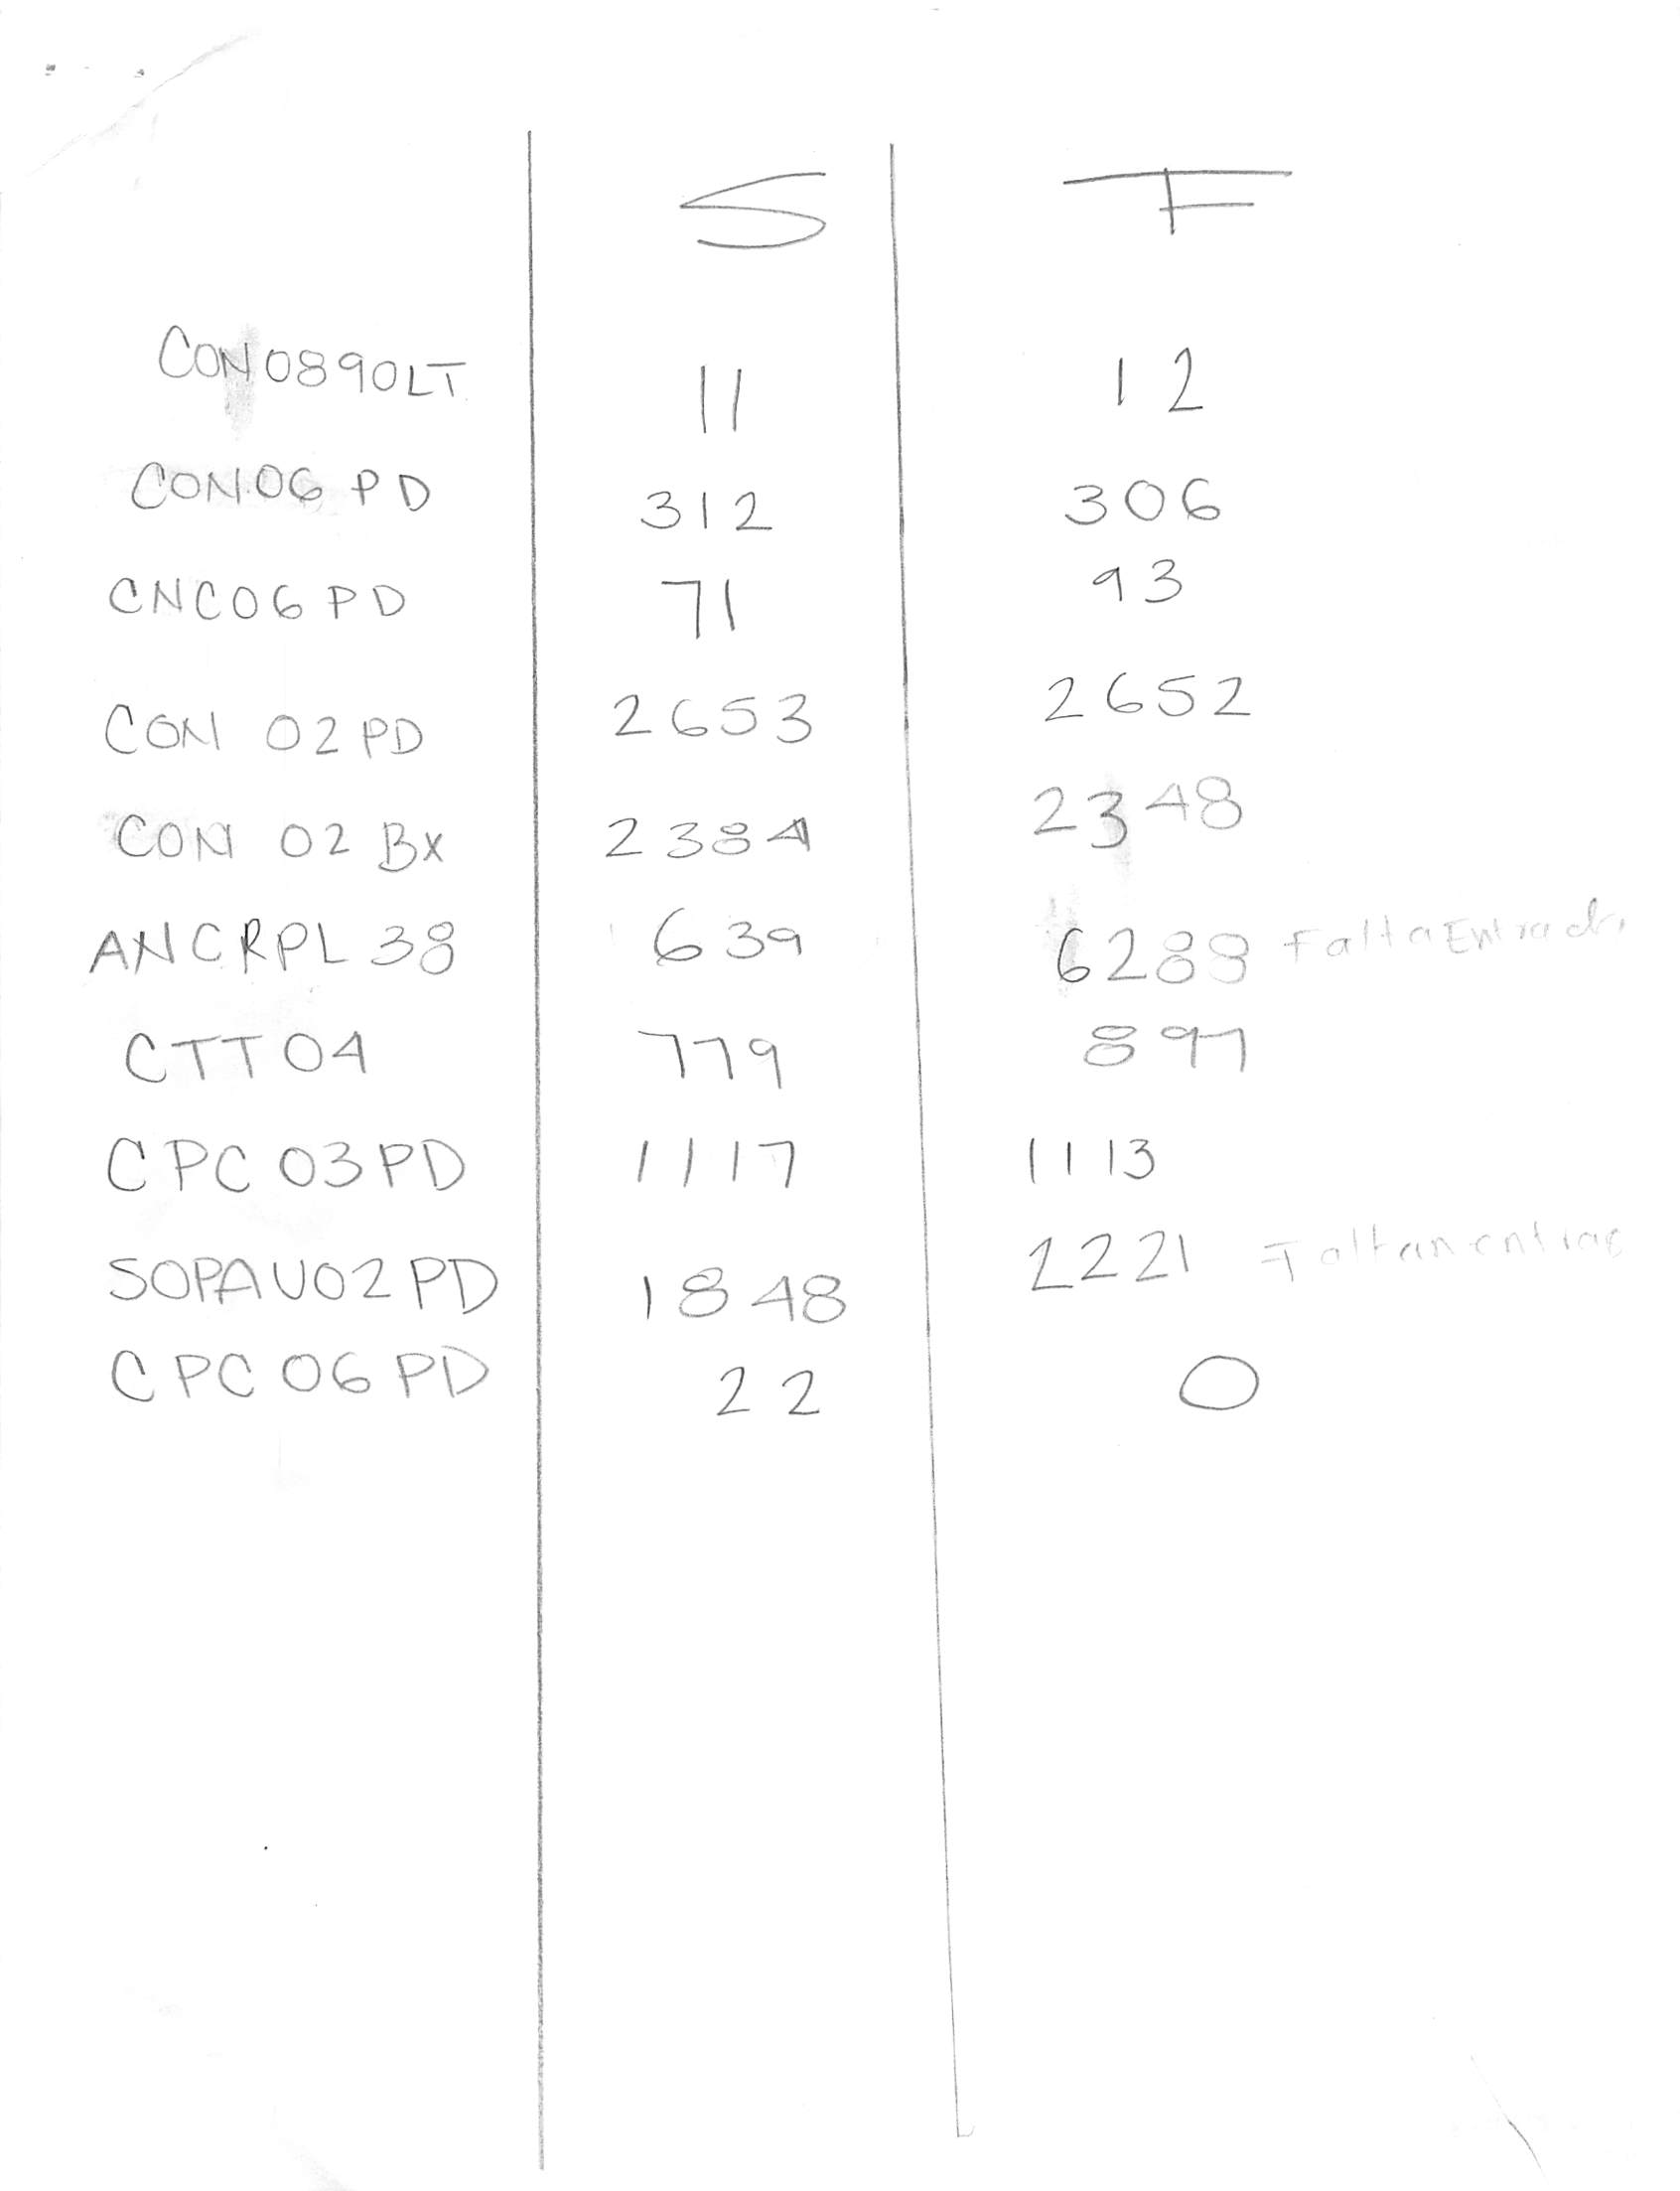 S F
CON0890LT 11 12
CON06 PD 312 306
CNC06PD 71 93
CON 02PD 2653 2652
CON 02 Bx 2384 2348
ANCRPL 38 639 6288 Falta Entrada
CTT04 779 897
CPC 03PD 1117 1113
SOPAU02PD 1848 2221 Faltan entrae
CPC 06 PD 22 0